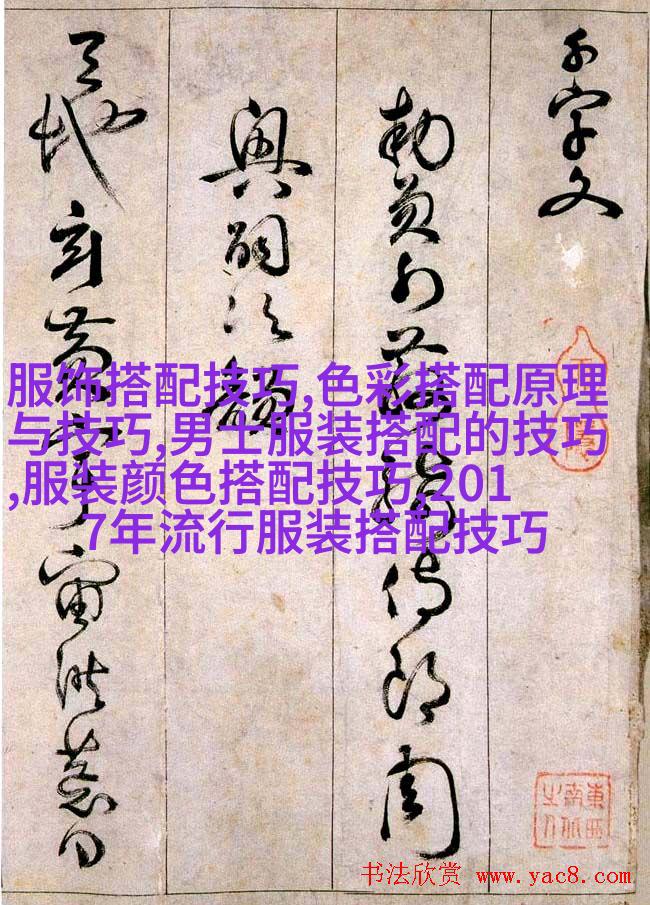 千字文
勅員外散騎侍郎周
興嗣次韻
天地玄黃宇宙洪荒日
服饰搭配技巧,色彩搭配原理
与技巧,男士服装搭配的技巧
,服装颜色搭配技巧,201
7年流行服装搭配技巧
東西南北之人
书法欣赏 www.yac8.com